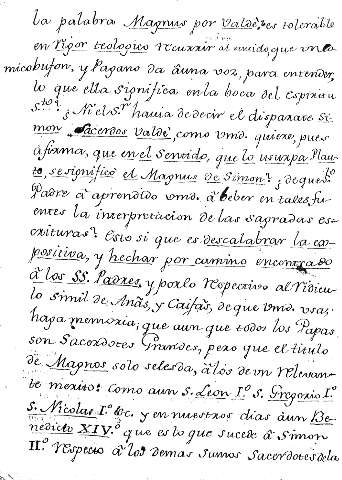 la palabra Magnus por Valdè, es tolerable
en rigor teologico recurrir al sentido, que un co
micobufon, y Pagano da à una voz, para entender,
lo que ella significa en la boca del Espiritu
S.to? ¿Ni el S.r havia de decir el disparate Si-
mon Sacerdos Valdè, como vmd. quiere, pues
afirma, que en el Sentido, que lo usurpa Plau-
to, se significò el Magnus de Simon? ¿de que S.to
Padre à aprendido vmd. à beber en tales fu-
entes la interpretacion de las Sagradas es-
crituras? Esto si que es descalabrar la ca
positiva, y hechar por camino encontrado
à los SS. Padres, y por lo respectivo al ridicu-
lo simil de Anàs, y Caifàs, de que vmd. usa;
haga memoria; que aun que todos los Papas
son Sacerdotes Grandes, pero que el titulo
de Magnos solo seles da, à los de un relevan-
te merito: como à un S. Leon I.º S. Gregorio I.º
S. Nicolas I.º &c. y en nuestros dias à un Be-
nedicto XIV.º que es lo que sucede à Simon
II.º respecto à los demas Sumos Sacerdotes de la